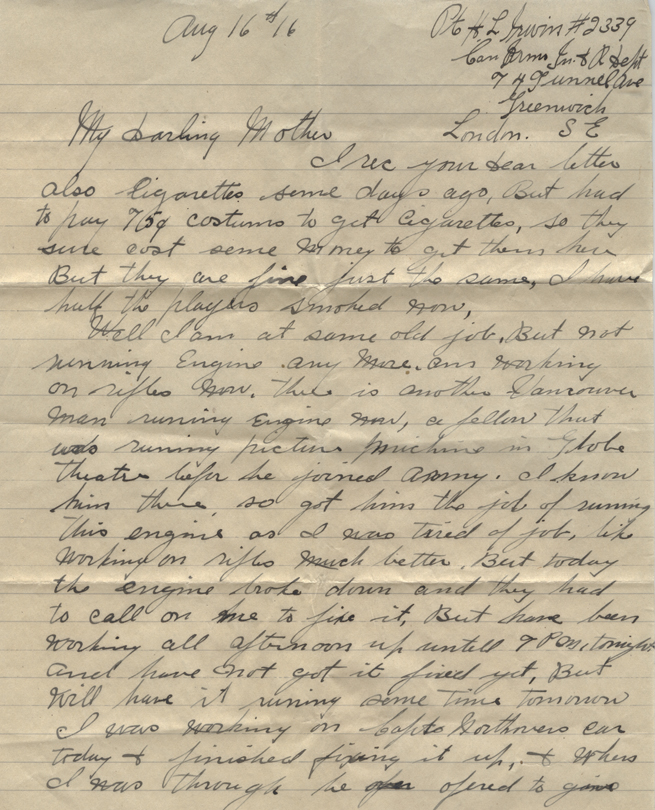 Aug 16th 16
Pte H L Irwin #2339
Can Arms In. & R Dept
74 Tunnel Ave
Greenwich
London. S E
My Darling Mother
I rec your dear letter
also Cigarettes some days ago, But had
to pay 75¢ costums to get Cigarettes, so they
sure cost some Money to get them here
But they are fine just the same, I have
half the players smoked now,
Well I am at same old job. But not
running Engine any More. am working
on rifles Now. there is another Vancouver
man runing Engine Now, a fellow that
was runing picture Machine in Globe
theatre befor he joined army. I know
him there, so got him the job of runing
this engine as I was tired of job, like
Working on rifles Much better. But today
the engine broke down and they had
to call on me to fix it, But have been
Working all afternoon up untell 7 PM. tonight
and have not got it fixed yet, But
Will have it runing some time tomorrow
I was working on Capts Northovers car
today & finished fixing it up, & When
I was through he ofered to give